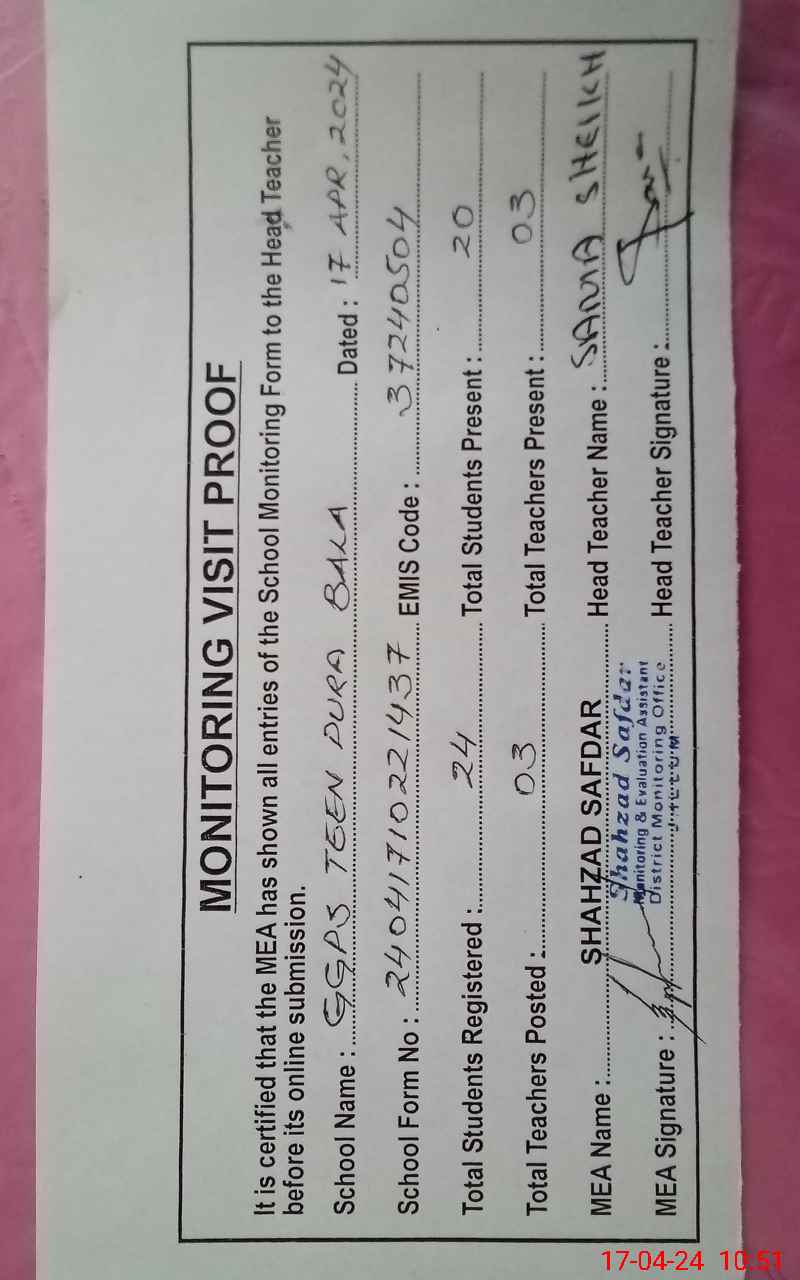 MONITORING VISIT PROOF
It is certified that the MEA has shown all entries of the School Monitoring Form to the Head Teacher
before its online submission.
School Name : GGPS TEEN PURA BALA Dated : 17 APR, 2024
School Form No : 24041710221437 EMIS Code : 37240504
Total Students Registered : 24 Total Students Present : 20
Total Teachers Posted : 03 Total Teachers Present : 03
MEA Name : SHAHZAD SAFDAR Head Teacher Name : SAMIA SHEIKH
Shahzad Safdar
Monitoring & Evaluation Assistant
District Monitoring Office
MEA Signature : Head Teacher Signature :
17-04-24 10:51